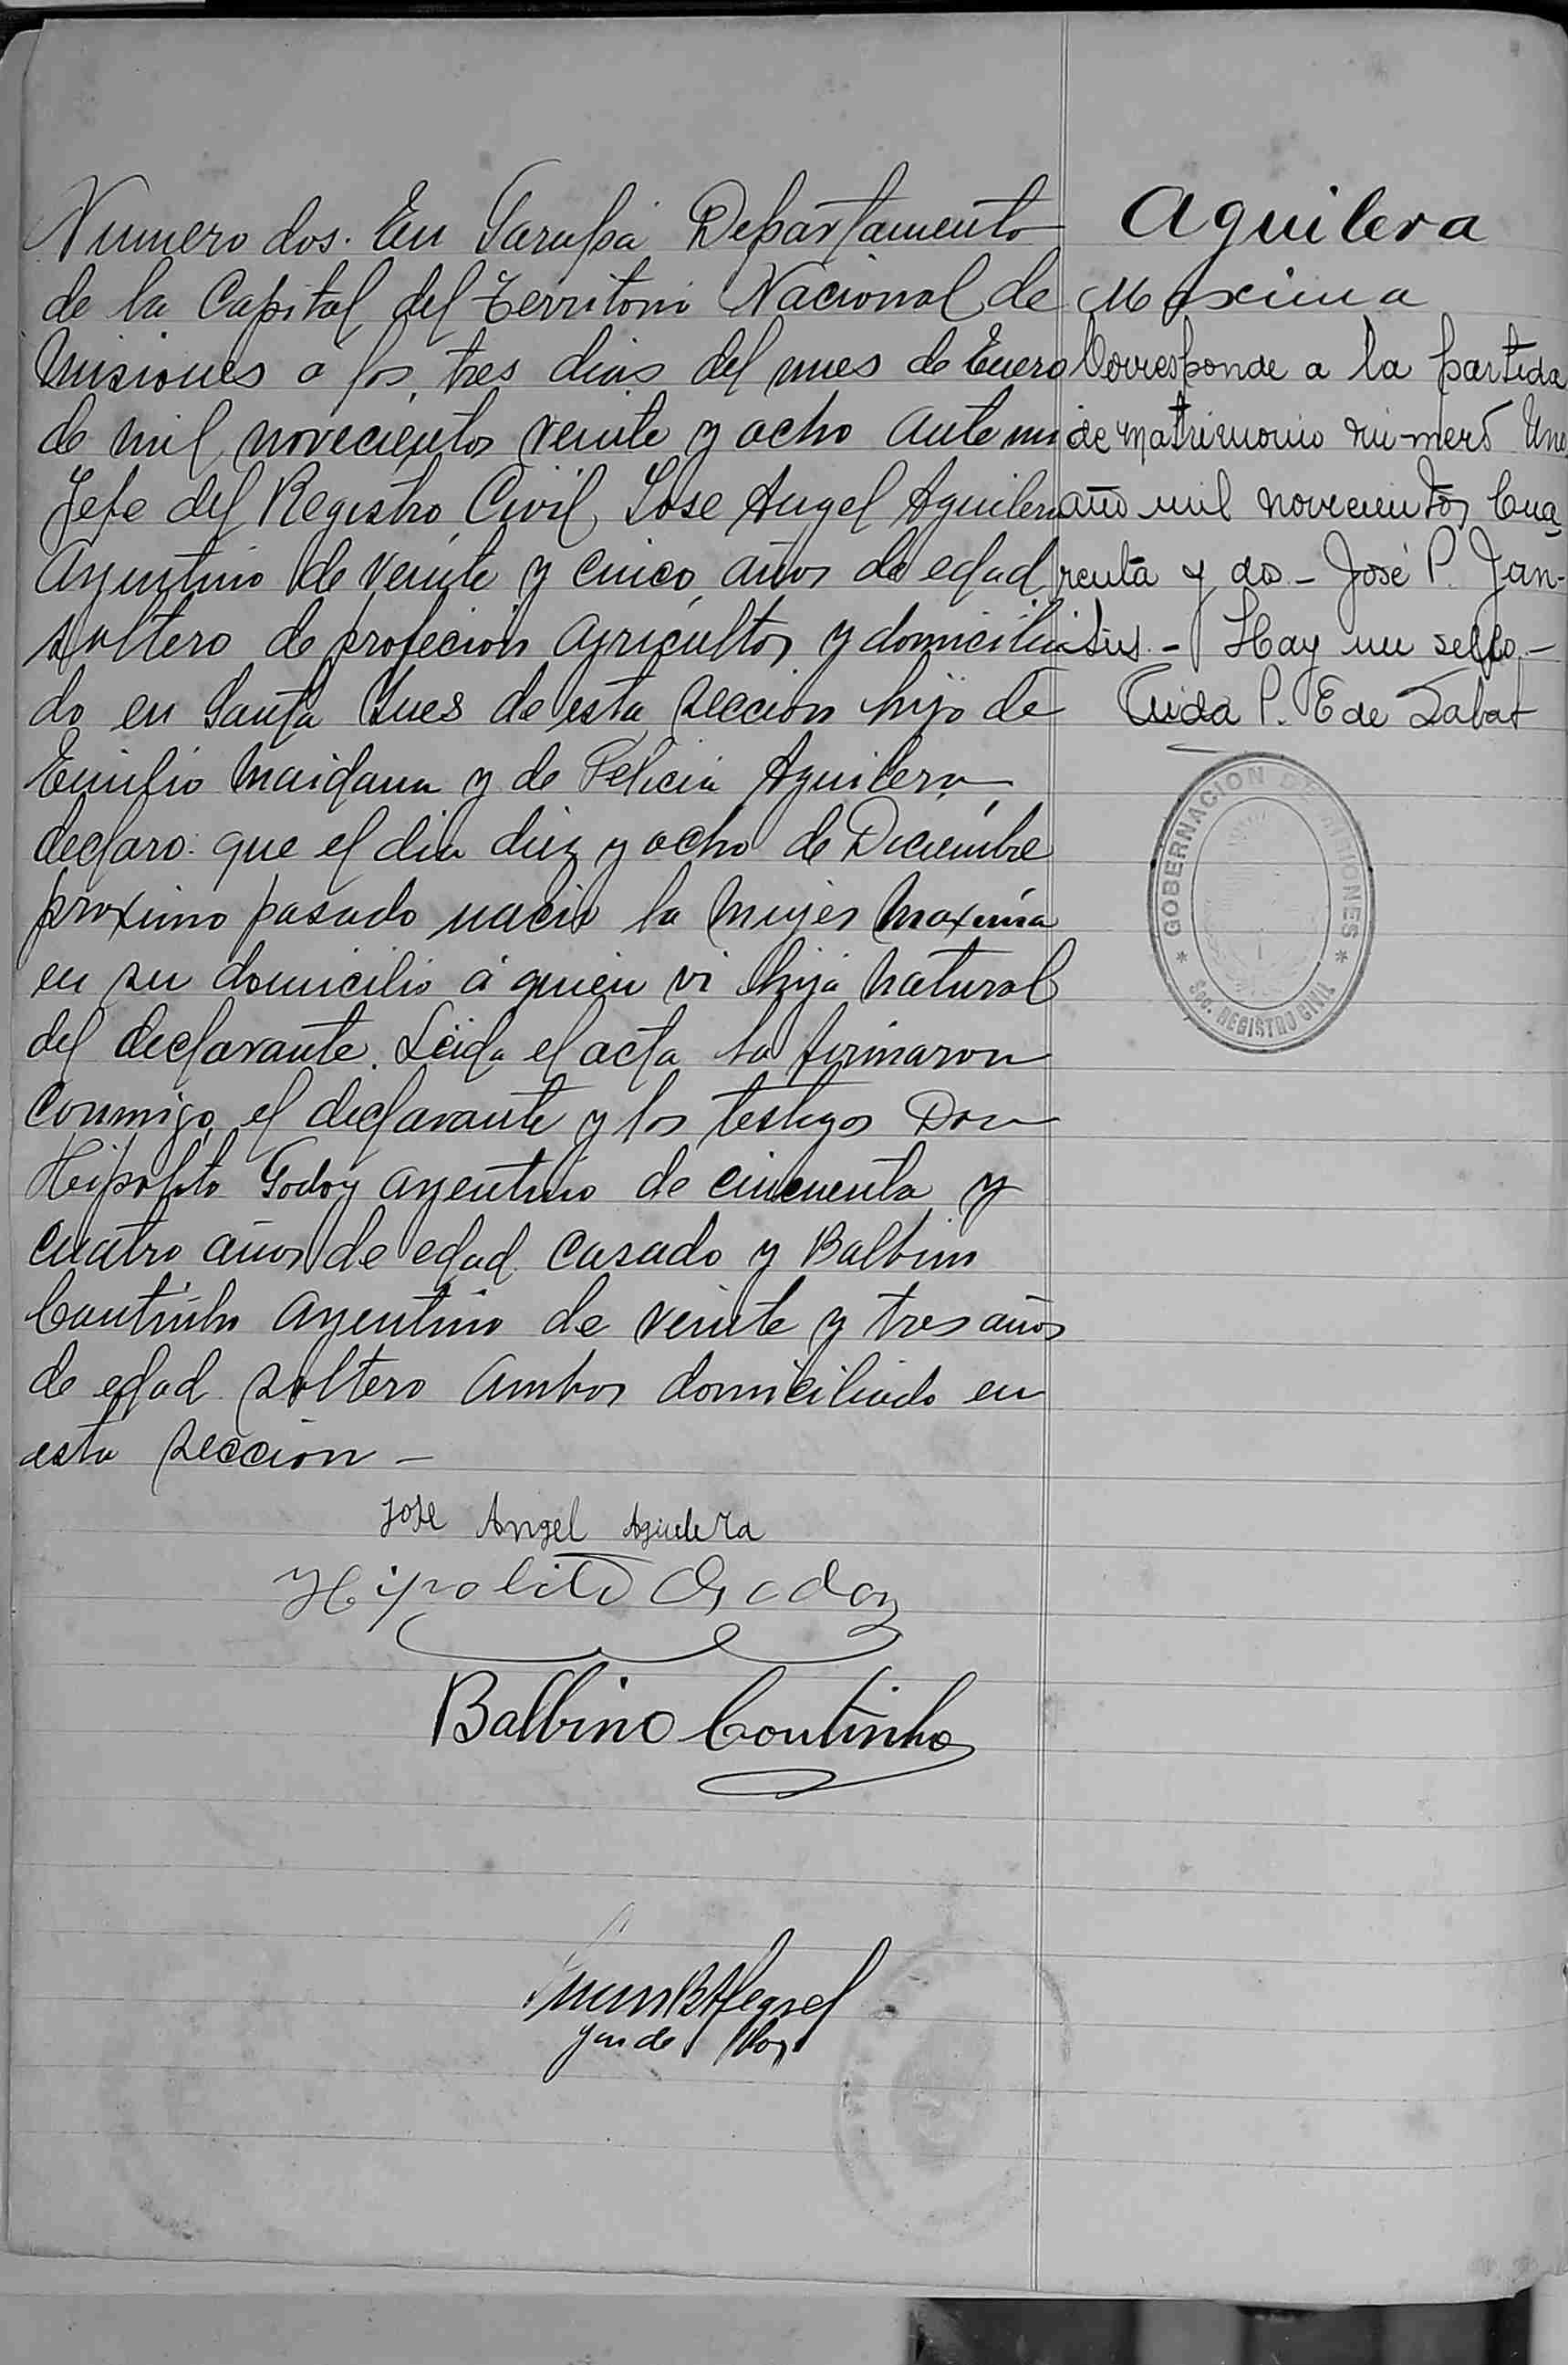 Numero dos. En Garupá Departamento
de la Capital del Territorio Nacional de
Misiones a los tres dias del mes de Enero
de mil novecientos veinte y ocho ante mi
Jefe del Registro Civil, Jose Angel Aguilera
Argentino de veinte y cinco años de edad
soltero de profecion agricultor y domicilia
do en Santa Ynes de esta seccion hijo de
Emilio Maidana y de Felicia Aguilera
declaro: que el dia diez y ocho de Diciembre
proximo pasado nacio la mujer Maxima
en su domicilio á quien vi hija natural
del declarante. Leida el acta la firmaron
conmigo el declarante y los testigos Don
Hipolito Godoy argentino de cincuenta y
cuatro años de edad casado y Balbino
Coutinho argentino de veinte y tres años
de edad soltero ambos domiciliado en
esta seccion -
Jose Angel Aguilera
Hipolito Godoy
Balbino Coutinho
Aguilera
Maxima
Corresponde a la partida
de matrimonio número Uno
año mil novecientos Cua
renta y dos - José P. Jan-
sus. - Hay un sello. -
P. E de Sabat
GOBERNACION DE MISIONES
* Scc. REGISTRO CIVIL *